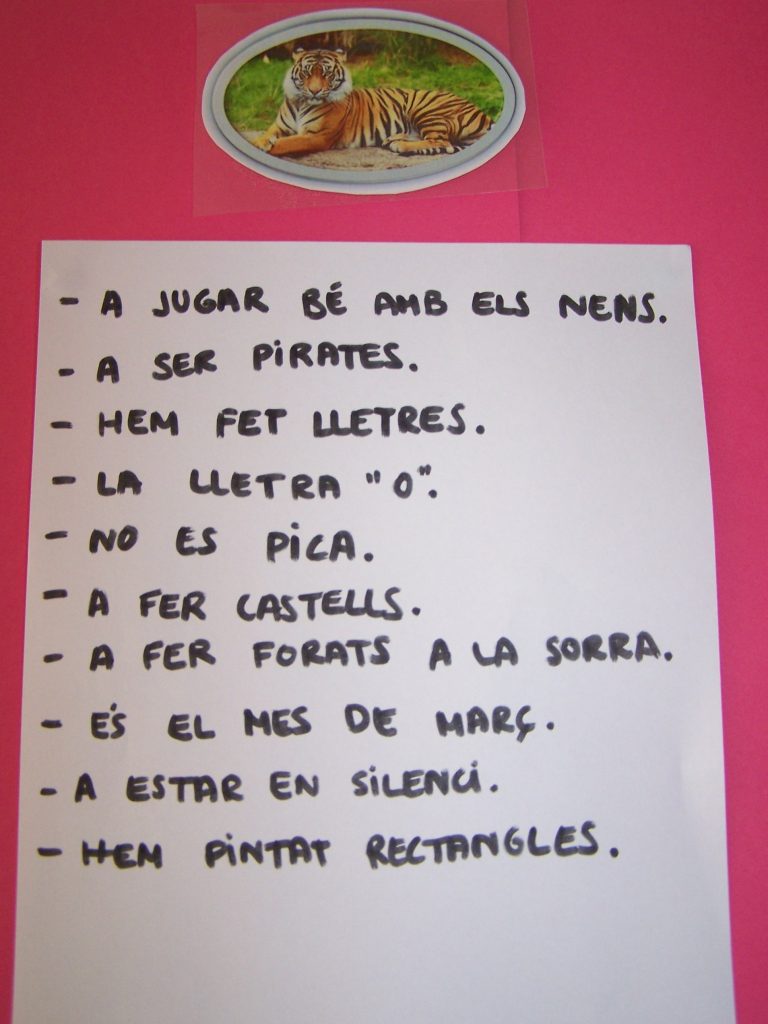 - A JUGAR BÉ AMB ELS NENS.
- A SER PIRATES.
- HEM FET LLETRES.
- LA LLETRA "O".
- NO ES PICA.
- A FER CASTELLS.
- A FER FORATS A LA SORRA.
- ÉS EL MES DE MARÇ.
- A ESTAR EN SILENCI.
- HEM PINTAT RECTANGLES.